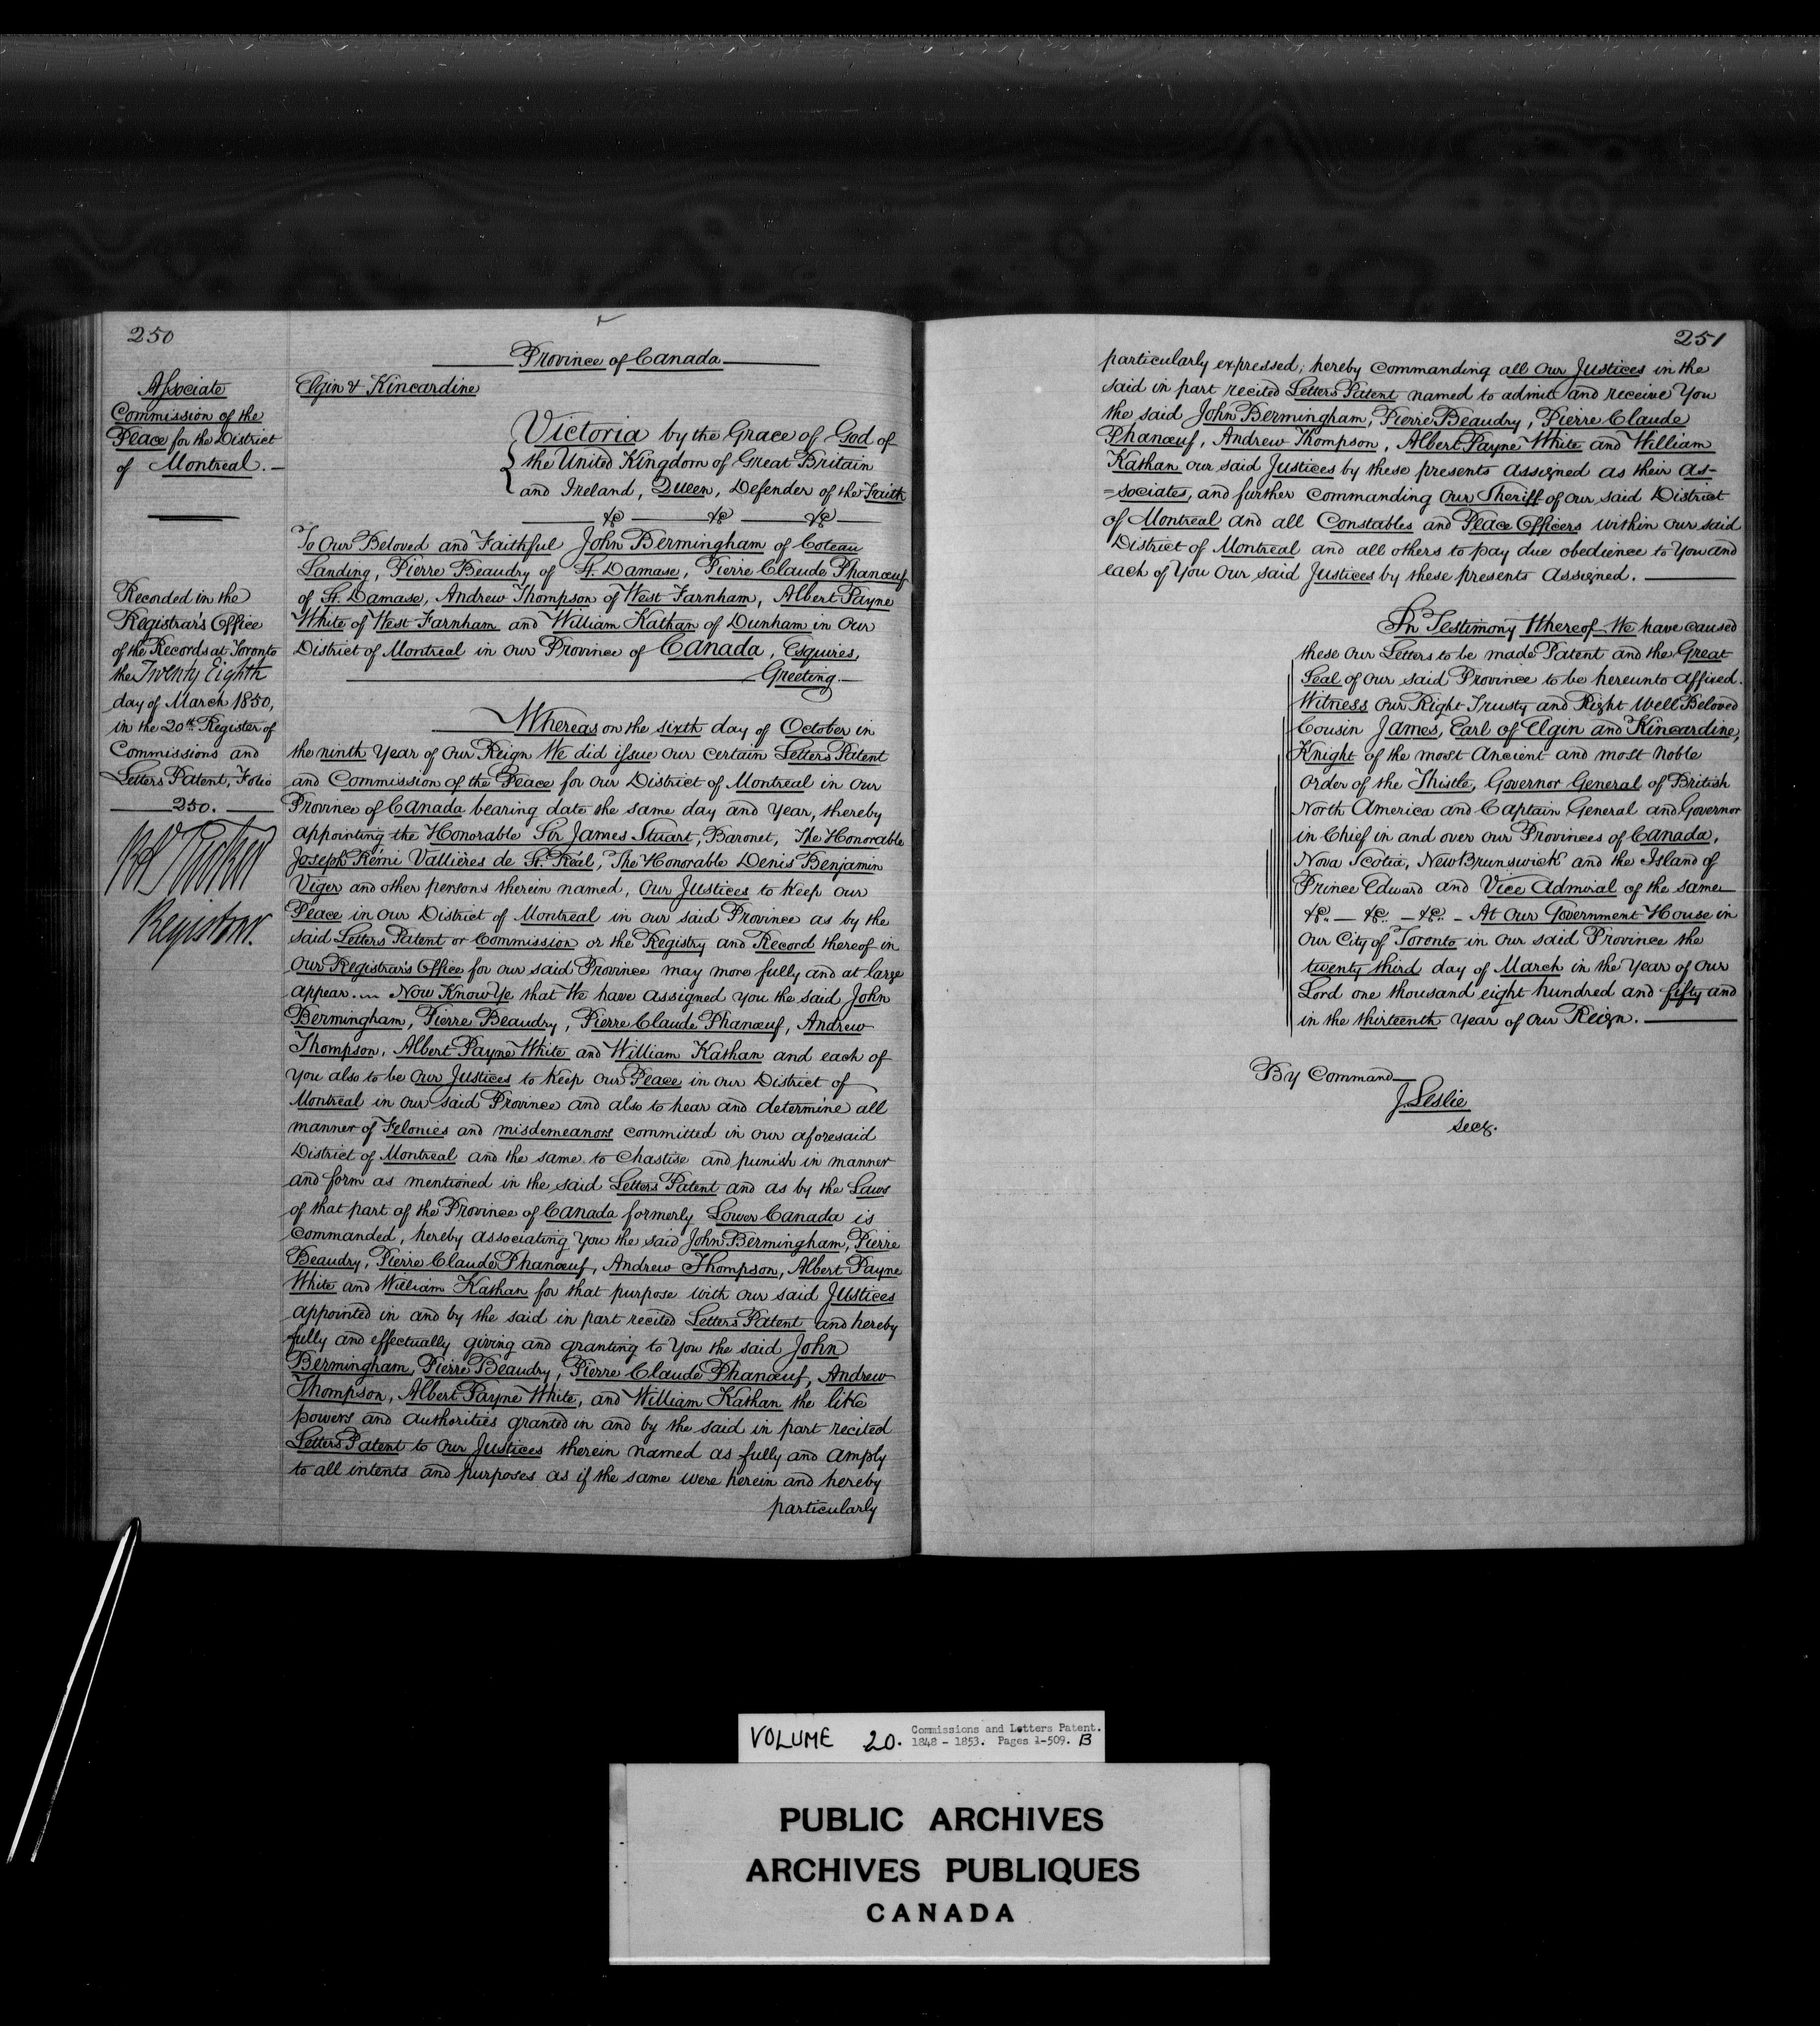 250
Associate
Commission of the
Peace for the District
of Montreal.
Recorded in the
Registrar's Office
of the Records at Toronto
the Twenty Eighth
day of March 1850,
in the 20th Register of
Commissions and
Letters Patent, Folio
250.
Registrar.
Province of Canada
Elgin & Kincardine
Victoria by the Grace of God of
the United Kingdom of Great Britain
and Ireland, Queen, Defender of the Faith
&c &c &c
To Our Beloved and Faithful John Bermingham of Coteau
Landing, Pierre Beaudry of St. Damase, Pierre Claude Phanœuf
of St. Damase, Andrew Thompson of West Farnham, Albert Payne
White of West Farnham and William Kathan of Dunham in Our
District of Montreal in our Province of Canada, Esquires,
Greeting.
Whereas on the sixth day of October in
the ninth Year of Our Reign We did issue our certain Letters Patent
and Commission of the Peace for our District of Montreal in our
Province of Canada bearing date the same day and Year, thereby
appointing the Honorable Sir James Stuart, Baronet, The Honorable
Joseph Rémi Vallières de St. Réal, The Honorable Denis Benjamin
Viger and other persons therein named, Our Justices to Keep our
Peace in our District of Montreal in our said Province as by the
said Letters Patent or Commission or the Registry and Record thereof in
Our Registrar's Office for our said Province may more fully and at large
appear. Now Know Ye that We have assigned you the said John
Bermingham, Pierre Beaudry, Pierre Claude Phanœuf, Andrew
Thompson, Albert Payne White and William Kathan and each of
you also to be Our Justices to Keep Our Peace in our District of
Montreal in our said Province and also to hear and determine all
manner of Felonies and misdemeanors committed in our aforesaid
District of Montreal and the same to Chastise and punish in manner
and form as mentioned in the said Letters Patent and as by the Laws
of that part of the Province of Canada formerly Lower Canada is
commanded, hereby associating You the said John Bermingham, Pierre
Beaudry, Pierre Claude Phanœuf, Andrew Thompson, Albert Payne
White and William Kathan for that purpose with our said Justices
appointed in and by the said in part recited Letters Patent and hereby
fully and effectually giving and granting to You the said John
Bermingham, Pierre Beaudry, Pierre Claude Phanœuf, Andrew
Thompson, Albert Payne White, and William Kathan the like
powers and authorities granted in and by the said in part recited
Letters Patent to Our Justices therein named as fully and amply
to all intents and purposes as if the same were herein and hereby
particularly
251
particularly expressed; hereby Commanding all Our Justices in the
said in part recited Letters Patent named to admit and receive You
the said John Bermingham, Pierre Beaudry, Pierre Claude
Phanœuf, Andrew Thompson, Albert Payne White and William
Kathan our said Justices by these presents assigned as their as-
=sociates, and further commanding Our Sheriff of our said District
of Montreal and all Constables and Peace Officers within our said
District of Montreal and all others to pay due obedience to You and
each of You Our said Justices by these presents assigned.
In Testimony Whereof We have caused
these Our Letters to be made Patent and the Great
Seal of Our said Province to be hereunto affixed.
Witness Our Right Trusty and Right Well Beloved
Cousin James, Earl of Elgin and Kincardine,
Knight of the most Ancient and most Noble
Order of the Thistle, Governor General of British
North America and Captain General and Governor
in Chief in and over our Provinces of Canada,
Nova Scotia, New Brunswick and the Island of
Prince Edward and Vice Admiral of the same
&c. — &c. — &c. — At Our Government House in
Our City of Toronto in our said Province the
twenty third day of March in the Year of Our
Lord one thousand eight hundred and fifty and
in the thirteenth Year of Our Reign.
By Command
J. Leslie
Secy.
VOLUME 20. Commissions and Letters Patent.
1848 - 1853. Pages 1-509. B
PUBLIC ARCHIVES
ARCHIVES PUBLIQUES
CANADA